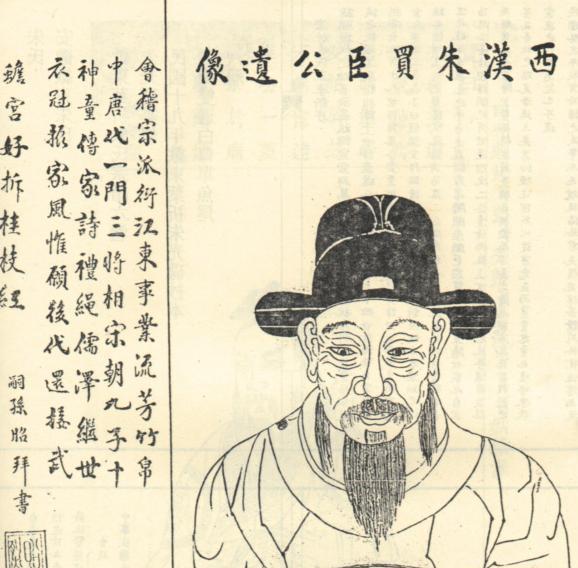 西漢朱買臣公遺像
會稽宗派衍江東事業流芳竹帛
中唐代一門三將相宋朝九子十
神童傳家詩禮繩儒澤繼世
衣冠振家風惟願後代還接武
蟾宮好折桂枝紅
嗣孫昭拜書